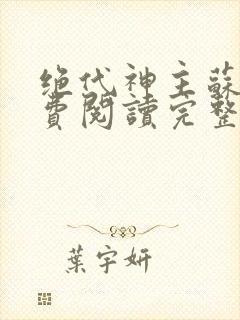 绝代神主蘇
費閱讀完整
葉宇妍